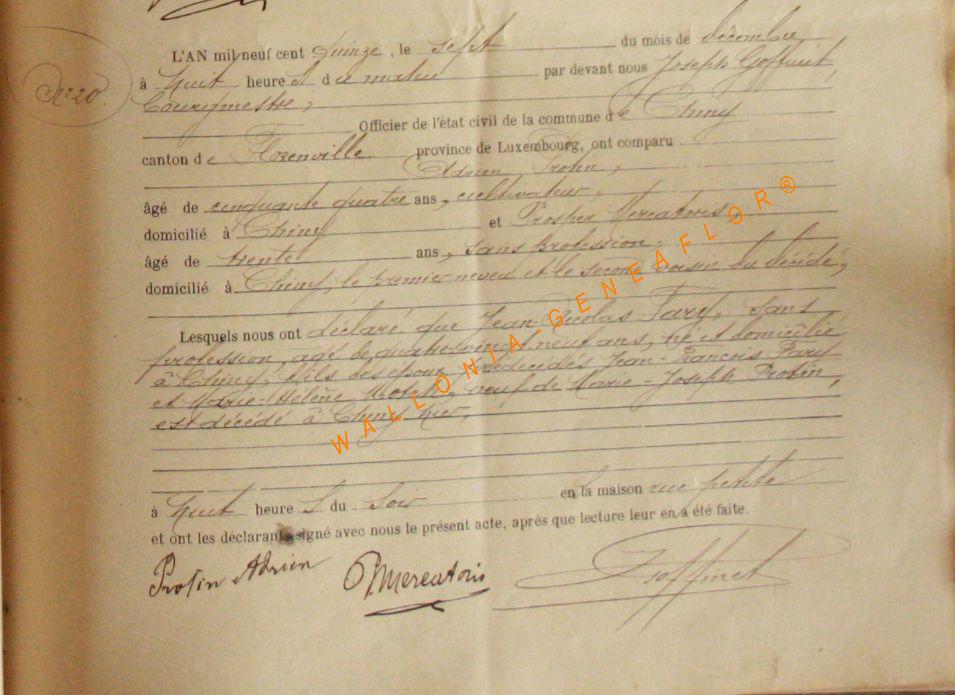 L'AN mil neuf cent quinze, le sept du mois de décembre,
à huit heure s d u matin par devant nous Joseph Goffinet,
N° 20.
Bourgmestre,
Officier de l'état civil de la commune d e Chiny
canton d e Florenville province de Luxembourg, ont comparu
Adrien Protin,
âgé de cinquante quatre ans, cultivateur,
domicilié à Chiny et Prosper Mercatoris,
âgé de trente ans, sans profession,
domicilié à Chiny, le premier neveu et le second voisin du décédé,
Lesquels nous ont déclaré que Jean-Nicolas Pary, sans
profession, agé de quatre vingt neuf ans, né et domicilié
à Chiny, fils des époux prédécédés Jean-François Pary
et Marie-Hélène, veuf de Marie-Joseph Protin,
est décédé à Chiny hier,
à huit heure s du soir en la maison rue petite
et ont les déclarants signé avec nous le présent acte, après que lecture leur en a été faite.
Protin Adrien PMercatoris JGoffinet
WALLONIA-GENEAFLOR®